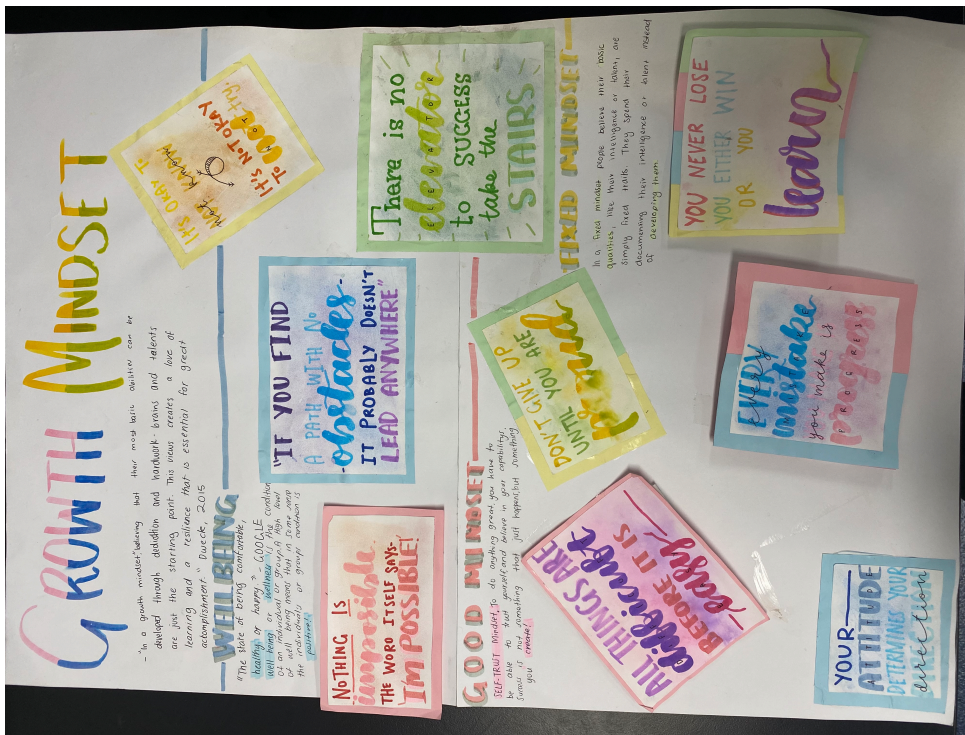 GROWTH MINDSET
- "In a growth mindset, believing that their most basic abilities can be
developed through dedication and hardwork - brains and talents
are just the starting point. This views creates a love of
learning and a resilience that is essential for great
accomplishment." Dweck, 2015
IT'S OKAY TO
not know
IT'S NOT OKAY
TO NOT try.
WELLBEING
"The state of being comfortable,
healthy or happy." - GOOGLE
well being or wellness is the condition
of an individual or group. A high level
of well being means that in some sense
the individuals or groups condition is
positive!
"IF YOU FIND
A PATH WITH NO
obstacles-
IT PROBABLY DOESN'T
LEAD ANYWHERE"
There is no
elevator
ELEVATOR
to SUCCESS
take the
STAIRS
NOTHING IS
impossible
THE WORD ITSELF SAYS-
'I'M POSSIBLE!'
GOOD MINDSET
SELF-TRUST Mindset, To do anything great, you have to
be able to trust yourself and believe in your capabilitys.
is not something that just happens, but something
you create!
DON'T GIVE UP
UNTIL YOU ARE
proud
FIXED MINDSET
In a fixed mindset people believe their basic
qualities, like their intelligence or talent, are
simply fixed traits. They spend their
documenting their intelligence or talent instead
of developing them.
ALL THINGS ARE
difficult
BEFORE IT IS
easy
EVERY
every
mistake
you make is
progress
PROGRESS
YOU NEVER LOSE
YOU EITHER WIN
OR YOU
learn
YOUR
ATTITUDE
DETERMINES YOUR
direction